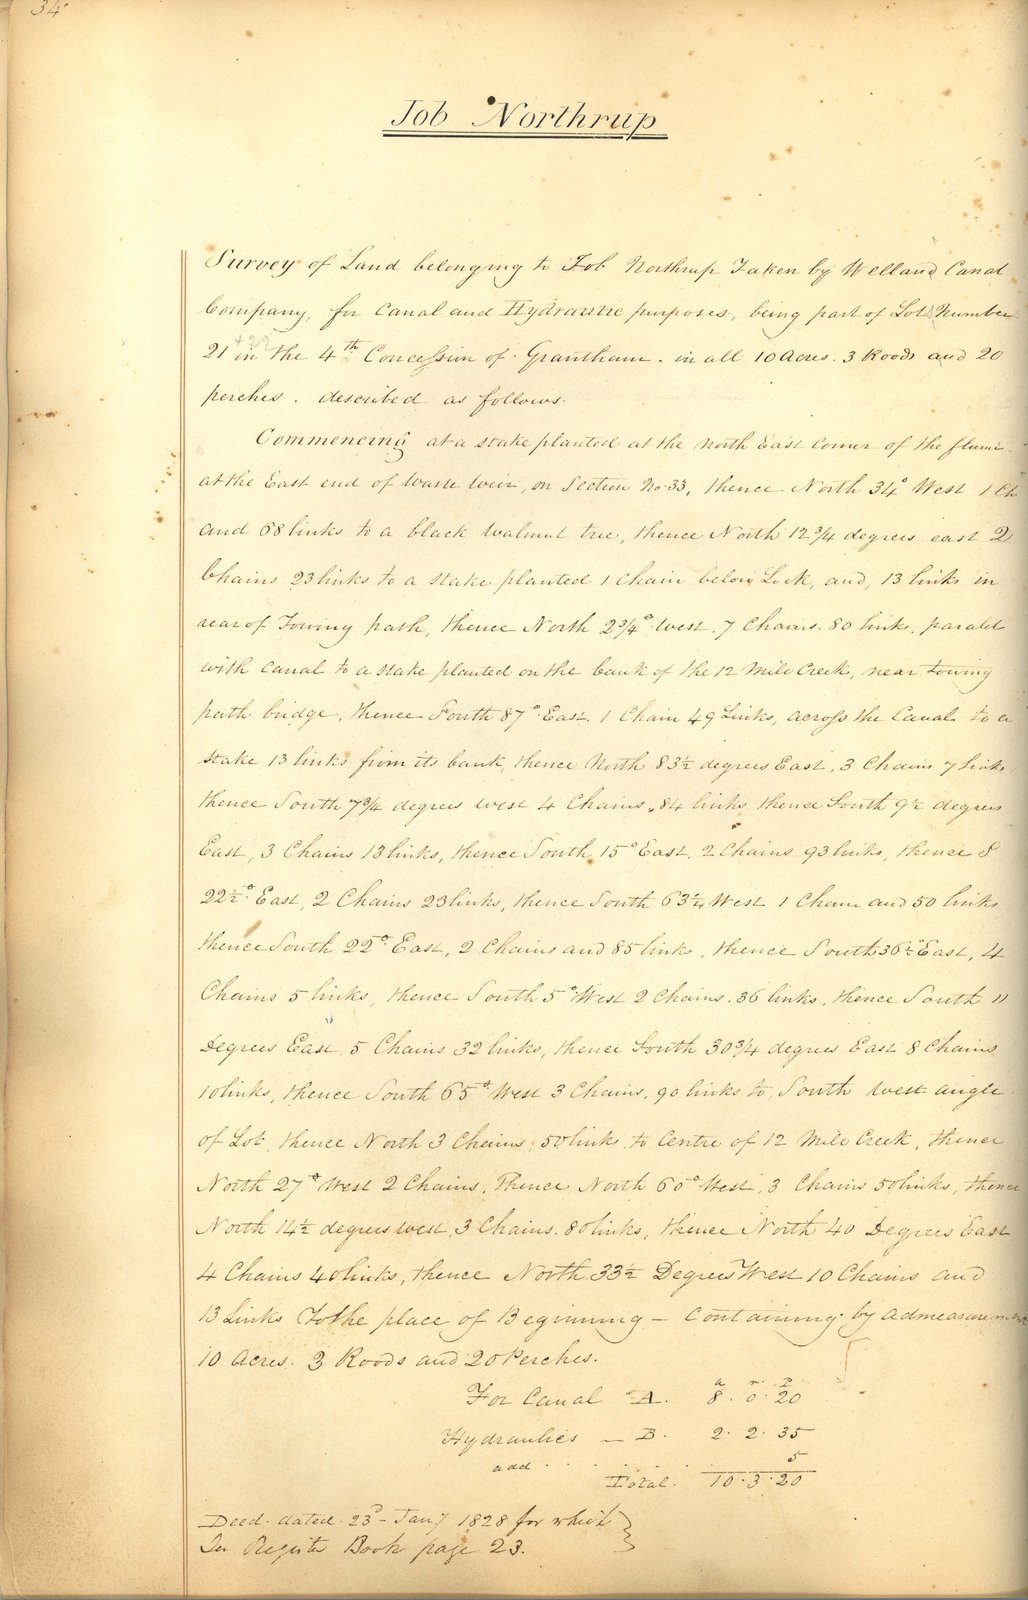 34
Job Northrup
Survey of Land belonging to Job Northrup Taken by Welland Canal
Company, for Canal and Hydraulic purposes, being part of Lot Number
+ 22
21 in the 4th Concession of Grantham. in all 10 Acres. 3 Roods and 20
perches. described as follows.
Commencing at a stake planted at the north East corner of the flume
at the East end of waste weir, on Section No. 33, thence North 34° West 1 Ch
and 68 links to a black walnut tree, thence North 12 3/4 degrees east 2
Chains 23 links to a stake planted 1 chain below Lock, and, 13 links in
rear of Towing path, thence North 2 3/4° West. 7 Chains. 80 links. paralel
with canal to a stake planted on the bank of the 12 Mile Creek, near towing
path bridge, thence South 87° East 1 Chain 49 Links, across the Canal to a
stake 13 links from its bank, thence North 83 1/2 degrees East, 3 Chains 7 links,
thence South 7 3/4 degrees west 4 Chains, 84 links thence South 9 1/2 degrees
East, 3 Chains 13 links, thence South 15° East, 2 Chains 93 links, thence S
22 1/2° East, 2 Chains 23 links, thence South 63 1/4 West 1 Chain and 50 links
thence South 22° East, 2 Chains and 85 links, thence South 36 1/2° East, 4
Chains 5 links, thence South 5° West 2 Chains. 36 links, thence South 11
Degrees East 5 Chains 32 links, thence South 30 3/4 degrees East 8 Chains
10 links, thence South 65° West 3 Chains, 90 links to South west angle
of Lot, thence North 3 Chains, 50 links to Centre of 12 Mile Creek, thence
North 27° West 2 Chains, Thence North 60° West, 3 Chains 50 links, thence
North 14 1/2 degrees west, 3 Chains. 80 links, thence North 40 Degrees East
4 Chains 40 links, thence North 33 1/2 Degrees West 10 Chains and
13 Links To the place of Beginning - Containing by admeasurement
10 Acres. 3 Roods and 20 Perches.
a r. P.
For Canal A. 8. 0. 20
Hydraulics - B. 2. 2. 35
add . . . . . . 5
Total. 10. 3. 20
Deed. dated. 23d - Jany 1828 for which
See Register Book page 23.